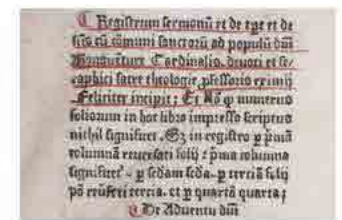 Registrum sermonū et de tpe et de
sctis cū cōmuni sanctorū ad populū dñi
Bonauēture Cardinalis. deuoti et se
raphici sacre theologie pfessorio eximij
Feliciter incipit: Et No q numerus
foliorum in hoc libro impresso scriptus
nichil significet. Sz in registro p pmā
columnā reuersati folij: pma columna
significet᷒ p sedam seda. p terciā folij
pō reuersi tercia. et p quartā quarta:
De Aduentu dñi